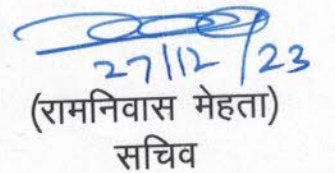 27/12/23
(रामनिवास मेहता)
सचिव